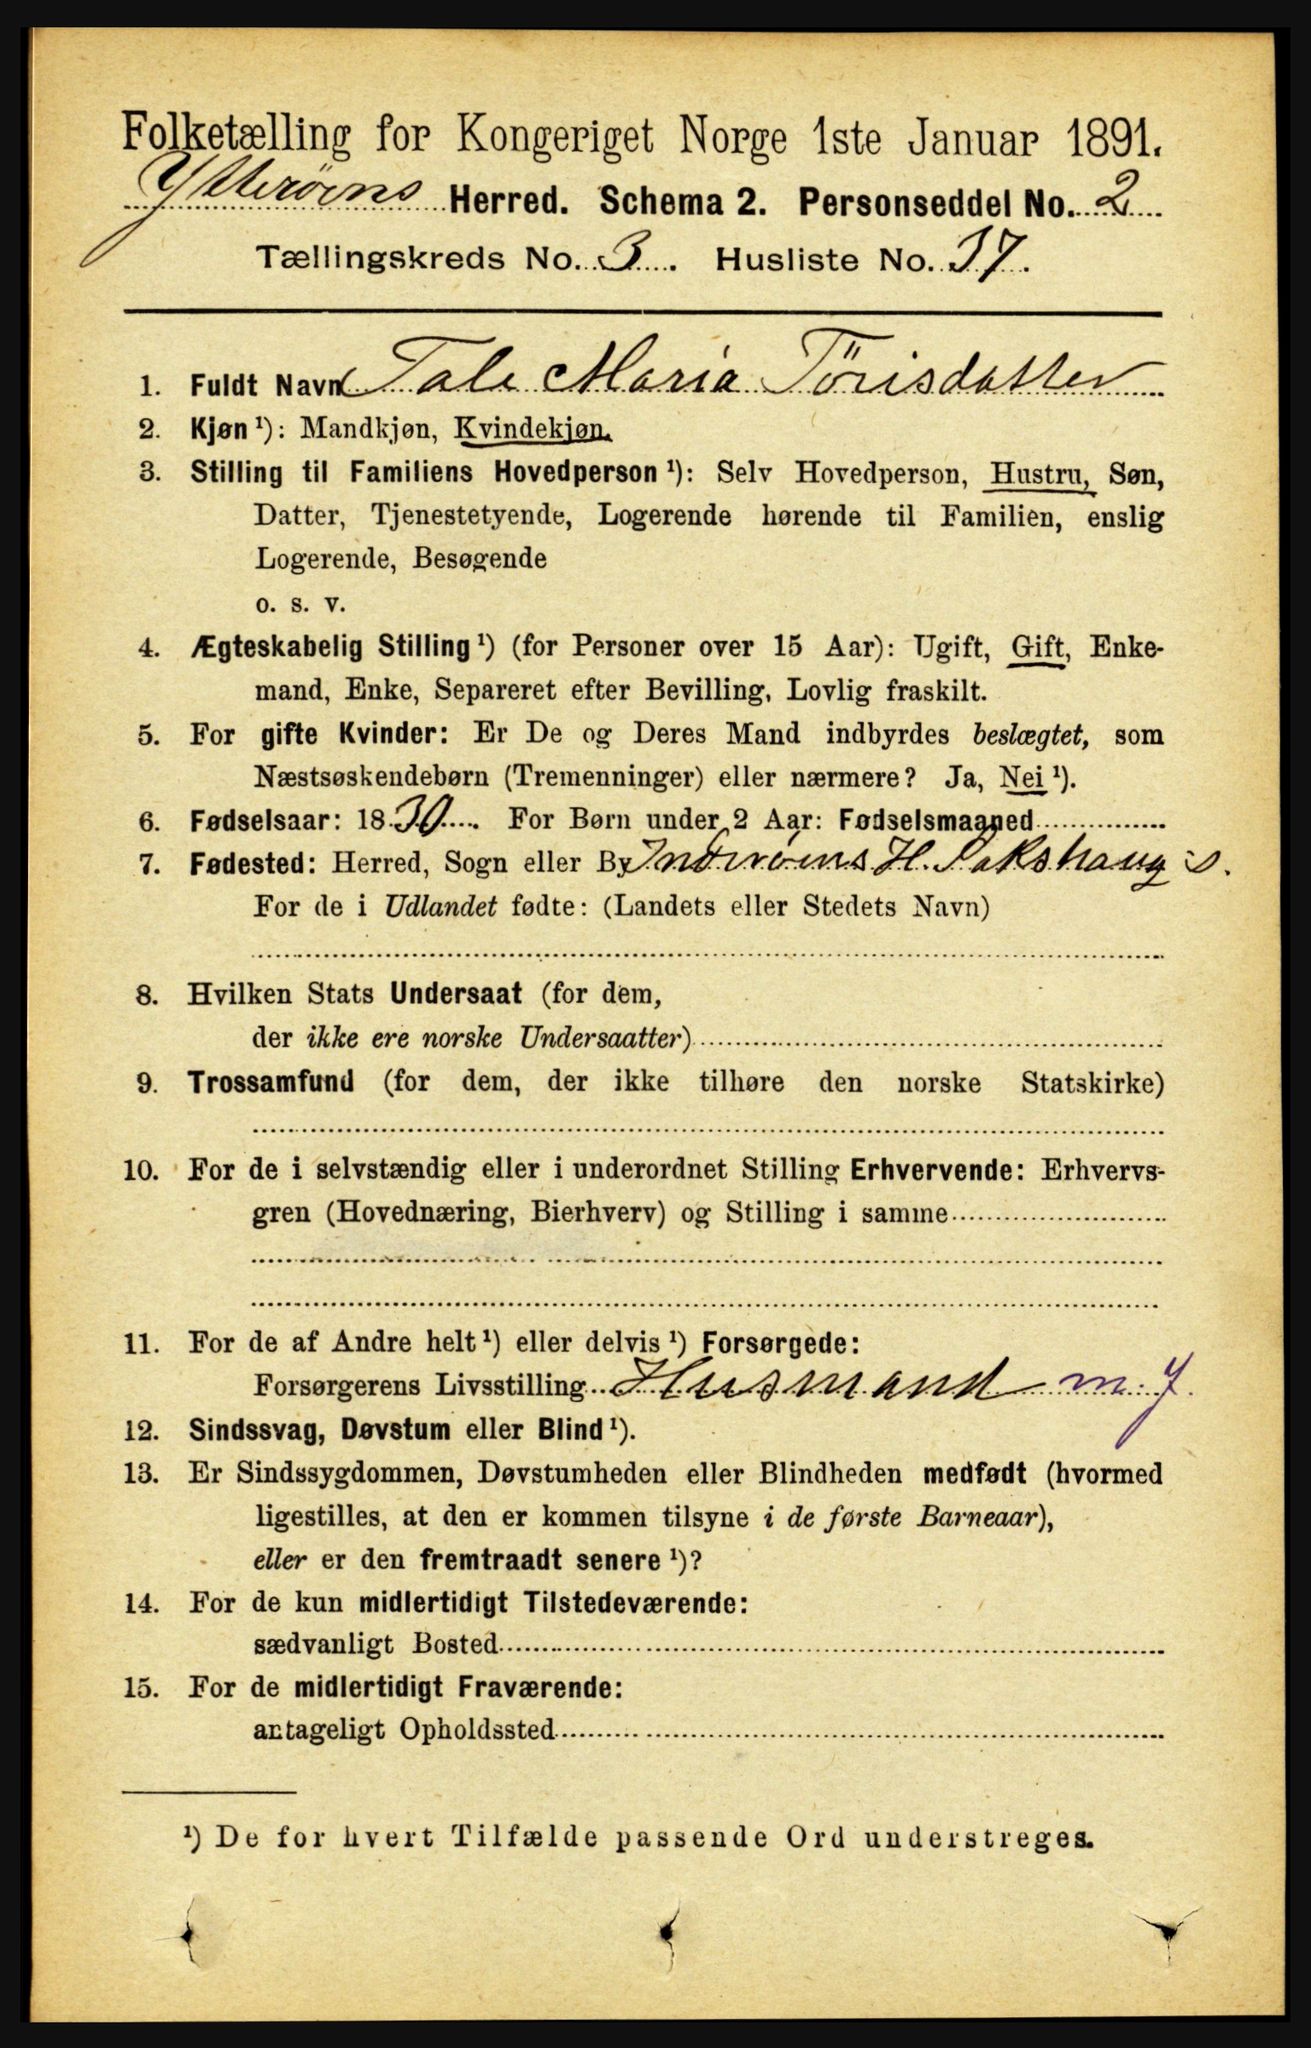 Folketælling for Kongeriget Norge 1ste Januar 1891.
Ytterøens Herred. Schema 2. Personseddel No. 2
Tællingskreds No. 3. Husliste No. 37.
1. Fuldt Navn Tale Maria Törisdatter
2. Kjøn ¹): Mandkjøn, Kvindekjøn.
3. Stilling til Familiens Hovedperson ¹): Selv Hovedperson, Hustru, Søn,
Datter, Tjenestetyende, Logerende hørende til Familien, enslig
Logerende, Besøgende
o. s. v.
4. Ægteskabelig Stilling ¹) (for Personer over 15 Aar): Ugift, Gift, Enke-
mand, Enke, Separeret efter Bevilling, Lovlig fraskilt.
5. For gifte Kvinder: Er De og Deres Mand indbyrdes beslægtet, som
Næstsøskendebørn (Tremenninger) eller nærmere? Ja, Nei ¹).
6. Fødselsaar: 1830. For Børn under 2 Aar: Fødselsmaaned
7. Fødested: Herred, Sogn eller By Inderøens H. Sakshaug s.
For de i Udlandet fødte: (Landets eller Stedets Navn)
8. Hvilken Stats Undersaat (for dem,
der ikke ere norske Undersaatter)
9. Trossamfund (for dem, der ikke tilhøre den norske Statskirke)
10. For de i selvstændig eller i underordnet Stilling Erhvervende: Erhvervs-
gren (Hovednæring, Bierhverv) og Stilling i samme
11. For de af Andre helt ¹) eller delvis ¹) Forsørgede:
Forsørgerens Livsstilling Husmand m. J.
12. Sindssvag, Døvstum eller Blind ¹).
13. Er Sindssygdommen, Døvstumheden eller Blindheden medfødt (hvormed
ligestilles, at den er kommen tilsyne i de første Barneaar),
eller er den fremtraadt senere ¹)?
14. For de kun midlertidigt Tilstedeværende:
sædvanligt Bosted
15. For de midlertidigt Fraværende:
antageligt Opholdssted
¹) De for hvert Tilfælde passende Ord understreges.